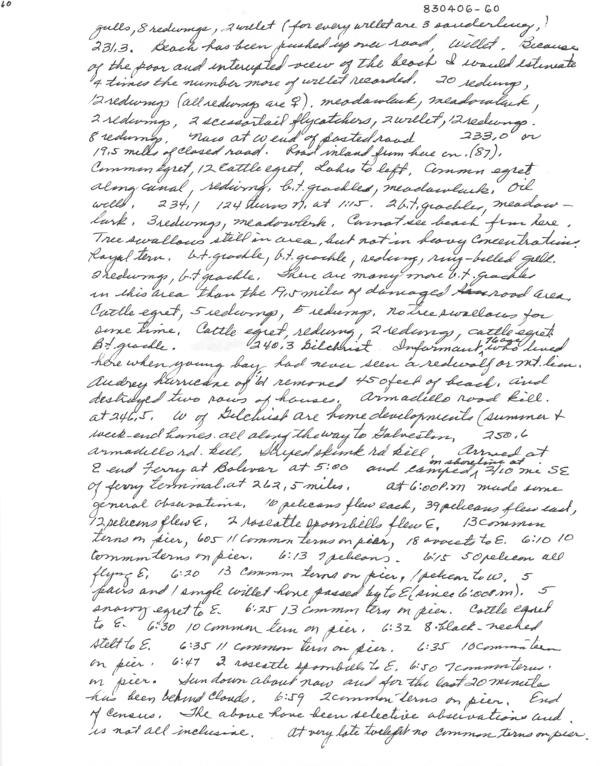 60
830406-60
gulls, 8 redwings, 2 willet (for every willet are 3 sanderling,)
231.3. Beach has been pushed up over road, Willet. Because
of the poor and interupted view of the beach I would estimate
4 times the number more of willet recorded. 20 redwing,
12 redwings (all redwing are ♀). meadowlark, meadowlark,
2 redwings, 2 scissortail flycatchers, 2 willet, 12 redwings.
8 redwing. Now at W end of posted road 233.0 or
19.5 miles of closed road. Road inland from here on. (87).
Common egret, 12 Cattle egret, Lakes to left, Common egret
along canal, redwing, b.t. grackles, meadowlark. Oil
well. 234.1 124 turns N. at 1:15. 2 b.t. grackles, meadow-
lark. 3 redwings, meadowlark. Cannot see beach from here.
Tree swallows still in area, but not in heavy concentration.
Royal tern. b.t. grackle, b.t. grackle, redwing, ring-billed gull.
2 redwings, b.t. grackle. There are many more b.t. grackles
in this area than the 19.5 miles of damaged road area.
Cattle egret, 5 redwings, 5 redwings. No tree swallows for
some time. Cattle egret, redwing, 2 redwings, cattle egret
B.t. grackle. 240.3 Gilchrist. Informant, who lived
here when young boy had never seen a red wolf or mt. lion.
Audrey hurricane of '61 removed 450 feet of beach. and
destroyed two rows of houses. Armadillo road kill.
at 246.5. W of Gilchrist are home developments (summer +
week-end homes all along the way to Galveston. 250.6
armadillo rd. kill. Striped skunk rd kill. Arrived at
E end Ferry at Bolivar at 5:00 and camped, in shoreline at 2/10 mi SE
of ferry terminal. at 262.5 miles. at 6:00 P.M made some
general observations. 10 pelicans flew each, 39 pelicans flew east,
12 pelicans flew E. 2 roseatte spoonbills flew E. 13 common
terns on pier, 605 11 common terns on pier, 18 avocets to E. 6:10 10
common terns on pier. 6:13 7 pelicans. 6:15 50 pelican all
flying E. 6:20 13 common terns on pier, 1 pelican to W. 5
pairs and 1 single willet have passed by to E (since 6:00 P.M). 5
snowy egret to E. 6:25 13 common tern on pier. Cattle egret
to E. 6:30 10 common tern on pier. 6:32 8 black-necked
stilt to E. 6:35 11 common tern on pier. 6:35 10 common tern
on pier. 6:47 2 roseatte spoonbills to E. 6:50 7 common terns
on pier. Sun down about now and for the last 20 minutes
has been behind clouds. 6:59 2 common terns on pier. End
of census. The above have been selective observations and
is not all inclusive. At very late twilight no common terns on pier.